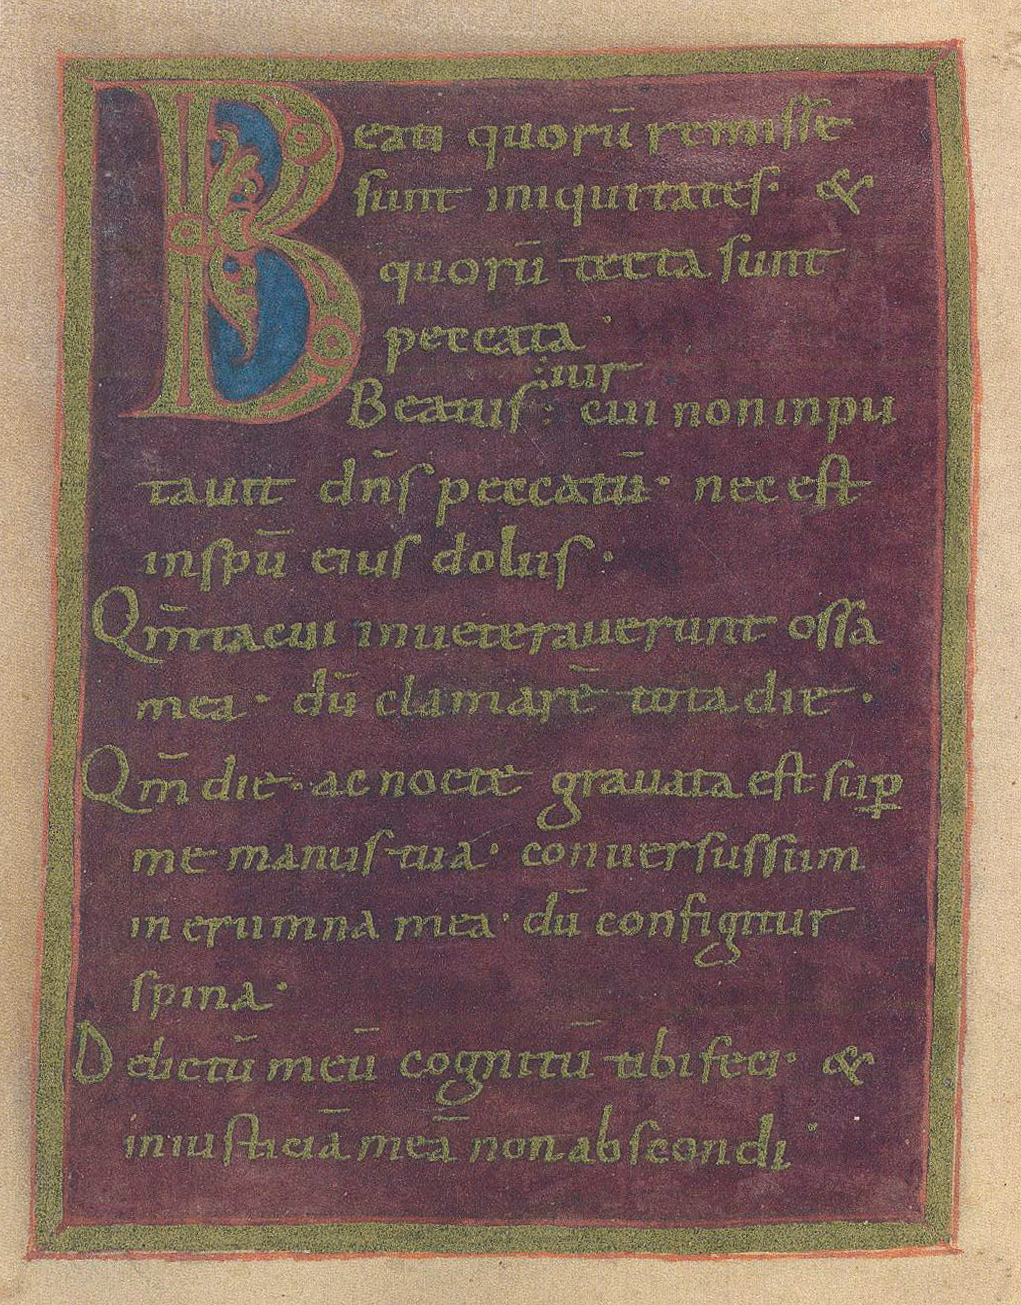 Beati quorū remisse
sunt iniquitates· &
quorū tecta sunt
peccata·
:iur
Beatus: cui non inpu
tauit dn̄s peccatū· nec est
in spū eius dolus·
Qm̄ tacui inueterauerunt ossa
mea· dū clamarē tota die·
Qm̄ die· ac nocte grauata est sup̱
me manus tua· conuersus sum
in erumna mea· dū configitur
spina·
Delictū meū cognitū tibi feci· &
iniusticiā meā non abscondi·